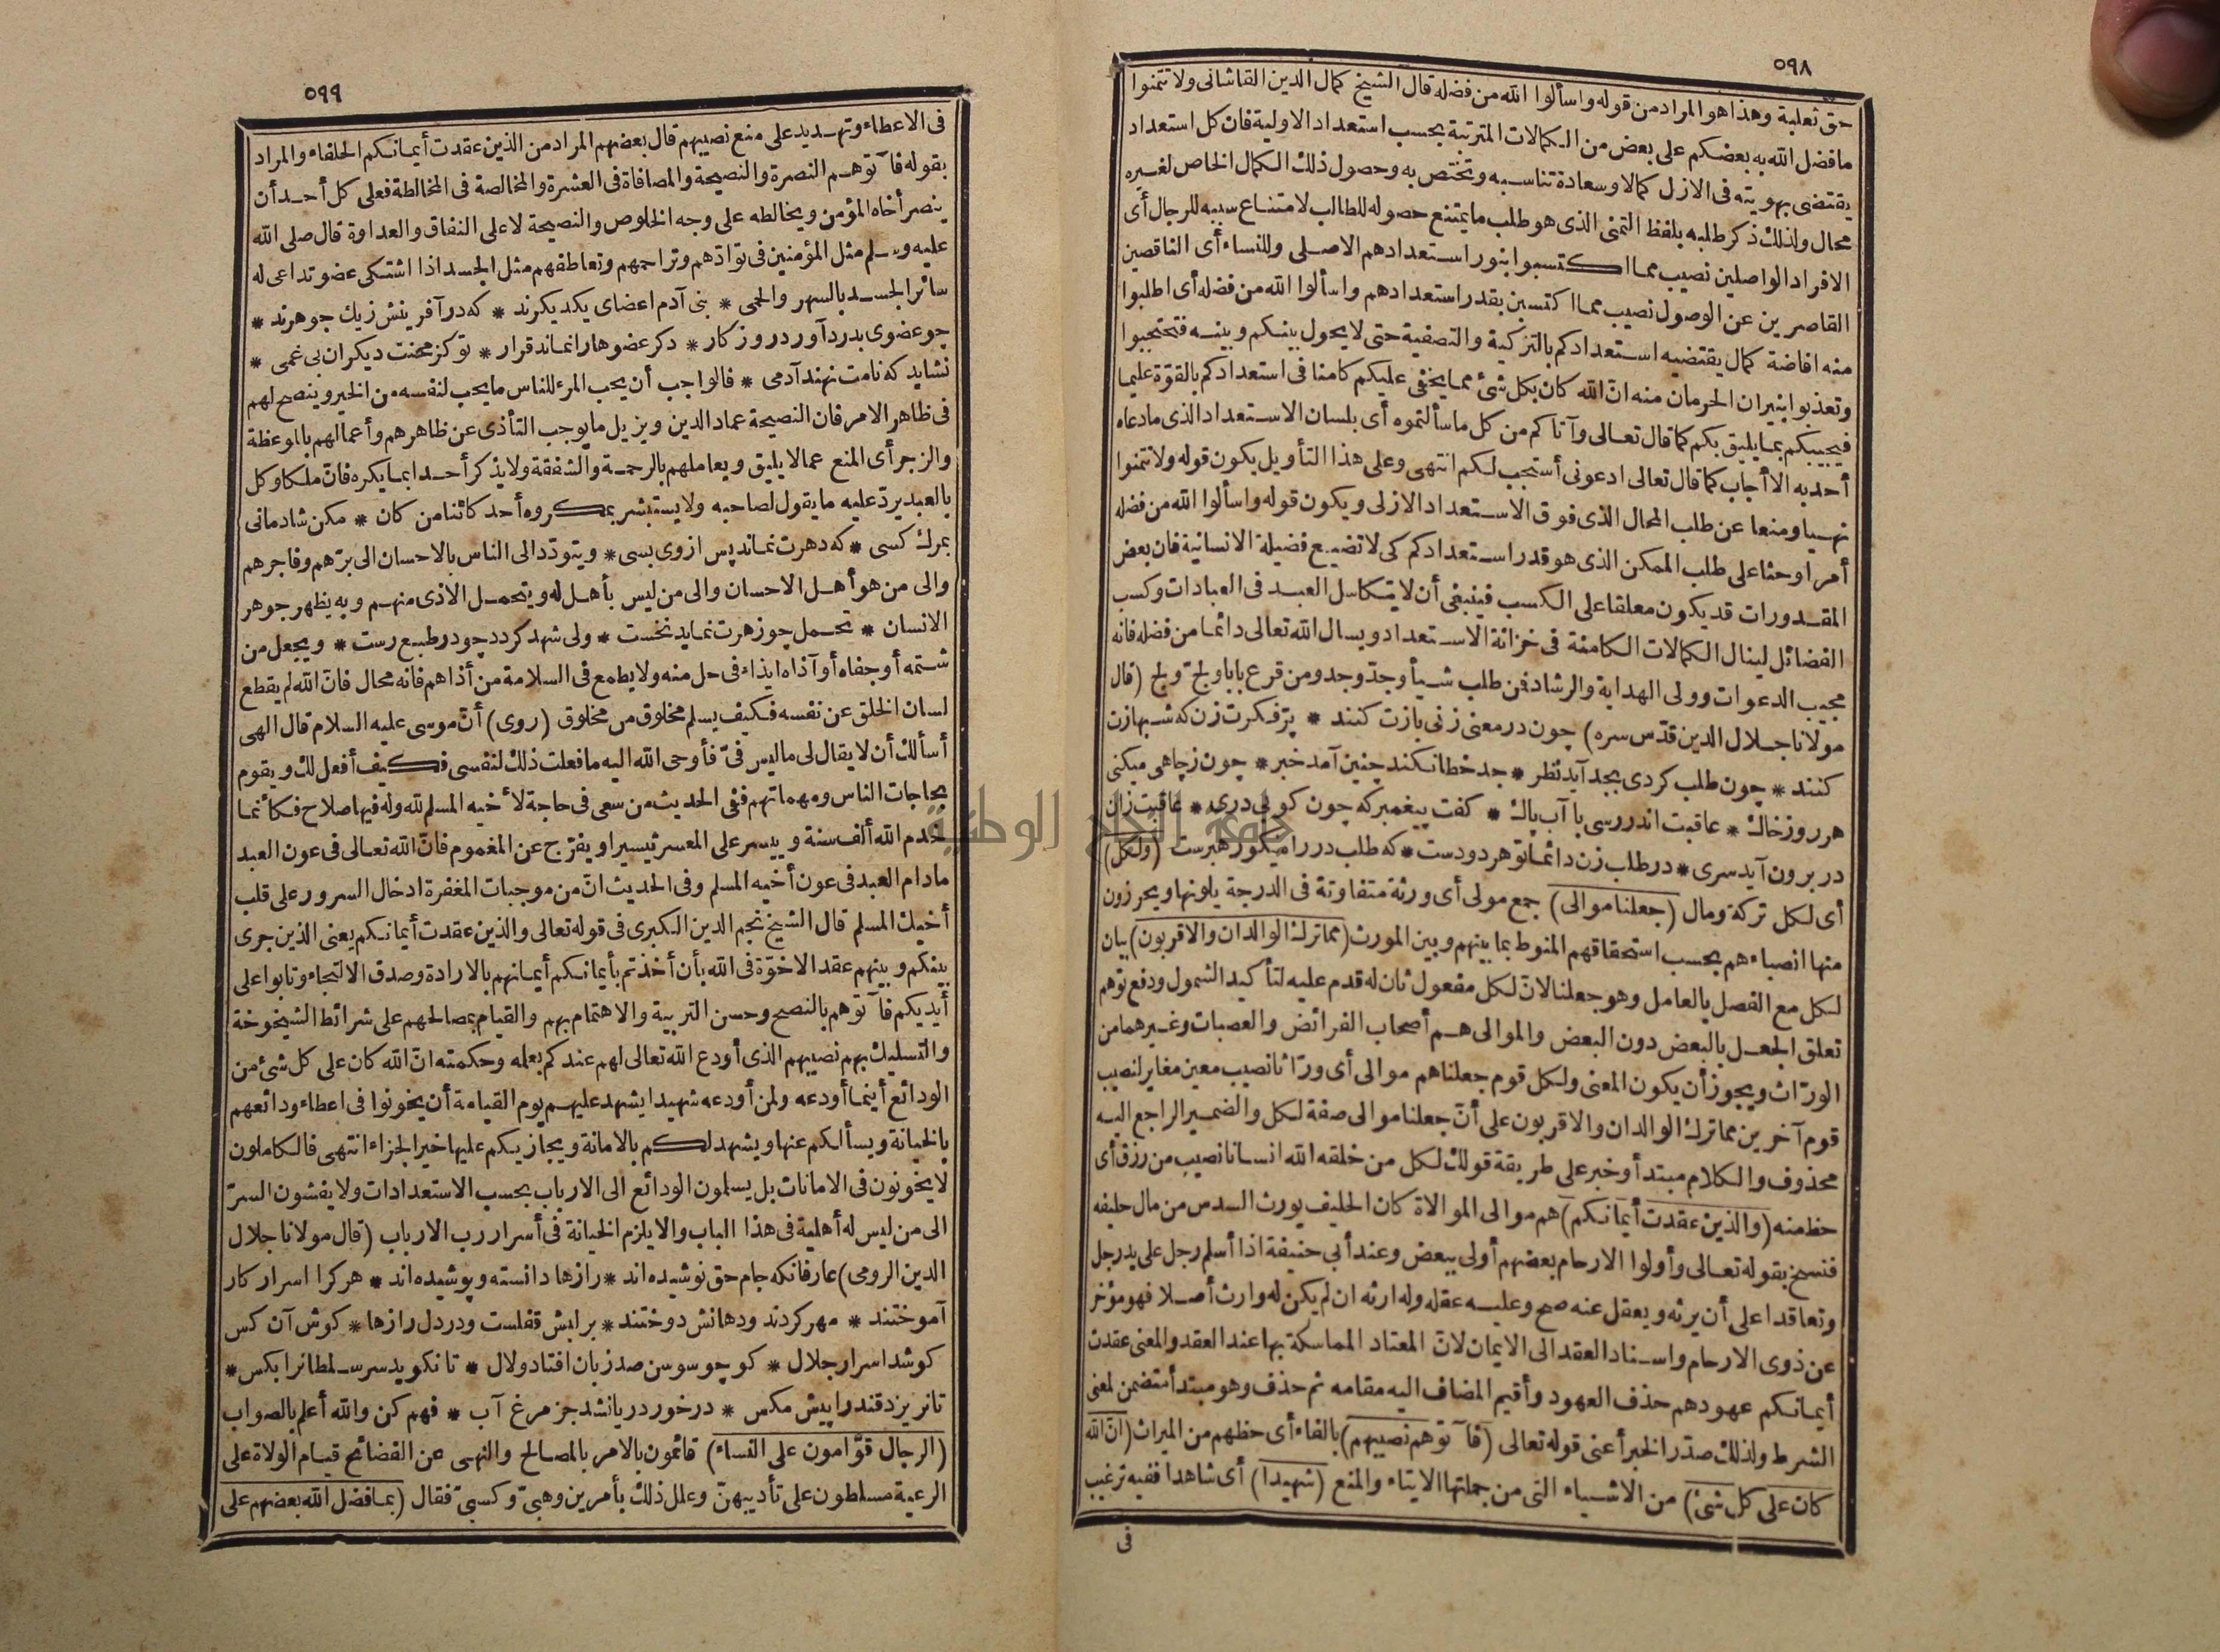 ٥٩٨
حق ثعلبة وهذا هو المراد من قوله واسألوا الله من فضله قال الشيخ كمال الدين القاشانى ولا تتمنوا
مافضل الله به بعضكم على بعض من الكمالات المترتبة بحسب استعداد الاولية فان كل استعداد
يقتضى بهويته فى الازل كمالا وسعادة تناسبه وتختص به وحصول ذلك الكمال الخاص لغيره
محال ولذلك ذكر طلبه بلفظ التمنى الذى هو طلب ما يمتنع حصوله للطالب لامتناع سببه للرجال أى
الافراد الواصلين نصيب مما اكتسبوا بنور استعدادهم الاصلى وللنساء أى الناقصين
القاصرين عن الوصول نصيب مما اكتسبن بقدر استعدادهم واسألوا الله من فضله أى اطلبوا
منه افاضة كمال يقتضيه استعدادكم بالتزكية والتصفية حتى لا يحول بينكم وبينه فتحتجبوا
وتعذبوا بنيران الحرمان منه ان الله كان بكل شئ مما يخفى عليكم كامنا فى استعدادكم بالقوة عليما
فيجيبكم بما يليق بكم كما قال تعالى وآتاكم من كل ماسألتموه أى بلسان الاستعداد الذى مادعاه
أحد به الا أجاب كما قال تعالى ادعونى أستجب لكم انتهى وعلى هذا التأويل يكون قوله ولا تتمنوا
نهيا ومنعا عن طلب المحال الذى فوق الاستعداد الازلى ويكون قوله واسألوا الله من فضله
أمرا وحثا على طلب الممكن الذى هو قدر استعدادكم كى لا تضيع فضيلة الانسانية فان بعض
المقدورات قد يكون معلقا على الكسب فينبغى أن لا يتكاسل العبد فى العبادات وكسب
الفضائل لينال الكمالات الكامنة فى خزانة الاستعداد ويسال الله تعالى دائما من فضله فانه
مجيب الدعوات وولى الهداية والرشاد فمن طلب شيأ وجد وجد ومن قرع بابا ولج ولج (قال
مولانا جلال الدين قدس سره) چون در معنى زنى بازت كنند * پر فكرت زن كه شهبازت
كنند * چون طلب كردى بجد آيد نظر * جد خطا نكند چنين آمد خبر * چون زچاهى ميكنى
هر روز خاك * عاقبت اندر رسى با آب پاك * كفت پيغمبر كه چون كوبى درى * عاقبت زان
در برون آيد سرى * در طلب زن دائما تو هر دو دست * كه طلب در را نيكور هبرست (ولكل)
أى لكل تركة ومال (جعلنا موالى) جمع مولى أى ورثة متفاوتة فى الدرجة يلونها ويحرزون
منها انصباءهم بحسب استحقاقهم المنوط بما بينهم وبين المورث (مما ترك الوالدان والاقربون) بيان
لكل مع الفصل بالعامل وهو جعلنا لان لكل مفعول ثان له قدم عليه لتأكيد الشمول ودفع توهم
تعلق الجعل بالبعض دون البعض والموالى هم أصحاب الفرائض والعصبات وغيرهما من
الوراث ويجوز أن يكون المعنى ولكل قوم جعلناهم موالى أى وراثا نصيب معين مغاير لنصيب
قوم آخرين مما ترك الوالدان والاقربون على أن جعلنا موالى صفة لكل والضمير الراجع اليه
محذوف والكلام مبتدأ وخبر على طريقة قولك لكل من خلقه الله انسانا نصيب من رزق أى
حظ منه (والذين عقدت أيمانكم) هم موالى الموالاة كان الحليف يورث السدس من مال حليفه
فنسخ بقوله تعالى وأولوا الارحام بعضهم أولى ببعض وعند أبى حنيفة اذا أسلم رجل على يد رجل
وتعاقدا على أن يرثه ويعقل عنه صح وعليه عقله وله ارثه ان لم يكن له وارث أصلا فهو مؤخر
عن ذوى الارحام واسناد العقد الى الايمان لان المعتاد المماسكة بها عند العقد والمعنى عقدت
أيمانكم عهودهم حذف العهود وأقيم المضاف اليه مقامه ثم حذف وهو مبتدأ متضمن لمعنى
الشرط ولذلك صدر الخبر أعنى قوله تعالى (فآتوهم نصيبهم) بالفاء أى حظهم من الميراث (ان الله
كان على كل شئ) من الاشياء التى من جملتها الايتاء والمنع (شهيدا) أى شاهدا ففيه ترغيب
فى
٥٩٩
فى الاعطاء وتهديد على منع نصيبهم قال بعضهم المراد من الذين عقدت أيمانكم الحلفاء والمراد
بقوله فآتوهم النصرة والنصيحة والمصافاة فى العشرة والمخالصة فى المخالطة فعلى كل أحد أن
ينصر أخاه المؤمن ويخالطه على وجه الخلوص والنصيحة لا على النفاق والعداوة قال صلى الله
عليه وسلم مثل المؤمنين فى توادهم وتراحمهم وتعاطفهم مثل الجسد اذا اشتكى عضو تداعى له
سائر الجسد بالسهر والحمى * بنى آدم اعضاى يكديكرند * كه در آفرينش زيك جوهرند *
چو عضوى بدرد آورد روزكار * دكر عضوهارا نماند قرار * تو كز محنت ديكران بى غمى *
نشايد كه نامت نهند آدمى * فالواجب أن يحب المرء للناس مايحب لنفسه من الخير وينصح لهم
فى ظاهر الامر فان النصيحة عماد الدين ويزيل مايوجب التأذى عن ظاهرهم وأعمالهم بالموعظة
والزجر أى المنع عما لا يليق ويعاملهم بالرحمة والشفقة ولا يذكر أحدا بما يكره فان ملكا وكل
بالعبد يرد عليه مايقول لصاحبه ولا يستبشر بمكروه أحد كائنا من كان * مكن شادمانى
بمرك كسى * كه دهرت نماند پس ازوى بسى * ويتودد الى الناس بالاحسان الى برهم وفاجرهم
والى من هو أهل الاحسان والى من ليس بأهل له ويتحمل الاذى منهم وبه يظهر جوهر
الانسان * تحمل چو زهرت نمايد نخست * ولى شهد كردد چو در طبع رست * ويجعل من
شتمه أو جفاه أو آذاه ايذاء فى حل منه ولا يطمع فى السلامة من أذاهم فانه محال فان الله لم يقطع
لسان الخلق عن نفسه فكيف يسلم مخلوق من مخلوق (روى) أن موسى عليه السلام قال الهى
أسألك أن لا يقال لى ماليس فى فأوحى الله اليه مافعلت ذلك لنفسى فكيف أفعل لك ويقوم
بحاجات الناس ومهماتهم ففى الحديث من سعى فى حاجة لأخيه المسلم لله وله فيها صلاح فكأنما
خدم الله ألف سنة وييسر على المعسر تيسيرا ويفرج عن المغموم فان الله تعالى فى عون العبد
مادام العبد فى عون أخيه المسلم وفى الحديث ان من موجبات المغفرة ادخال السرور على قلب
أخيك المسلم قال الشيخ نجم الدين الكبرى فى قوله تعالى والذين عقدت أيمانكم يعنى الذين جرى
بينكم وبينهم عقد الاخوة فى الله بأن أخذتم بأيمانكم أيمانهم بالارادة وصدق الالتجاء وتابوا على
أيديكم فآتوهم بالنصح وحسن التربية والاهتمام بهم والقيام بمصالحهم على شرائط الشيخوخة
والتسليك بهم نصيبهم الذى أودع الله تعالى لهم عندكم بعلمه وحكمته ان الله كان على كل شئ من
الودائع أينما أودعه ولمن أودعه شهيدا يشهد عليهم يوم القيامة أن يخونوا فى اعطاء ودائعهم
بالخيانة ويسألكم عنها ويشهد لكم بالامانة ويجازيكم عليها خير الجزاء انتهى فالكاملون
لا يخونون فى الامانات بل يسلمون الودائع الى الارباب بحسب الاستعدادات ولا يفشون السر
الى من ليس له أهلية فى هذا الباب والا يلزم الخيانة فى أسرار رب الارباب (قال مولانا جلال
الدين الرومى) عارفانكه جام حق نوشيده اند * رازها دانسته وپوشيده اند * هركرا اسرار كار
آموختند * مهر كردند ودهانش دوختند * برلبش قفلست ودر دل رازها * كوش آن كس
كوشد اسرار جلال * كو چو سوسن صد زبان افتاد ولال * تا نكويد سر سلطانرا بكس *
تا نريزد قند را پيش مكس * درخور دريا نشد جز مرغ آب * فهم كن والله أعلم بالصواب
(الرجال قوامون على النساء) قائمون بالامر بالمصالح والنهى عن الفضائح قيام الولاة على
الرعية مسلطون على تأديبهن وعلل ذلك بأمرين وهبى وكسبى فقال (بما فضل الله بعضهم على
جامعة النجاح الوطنية